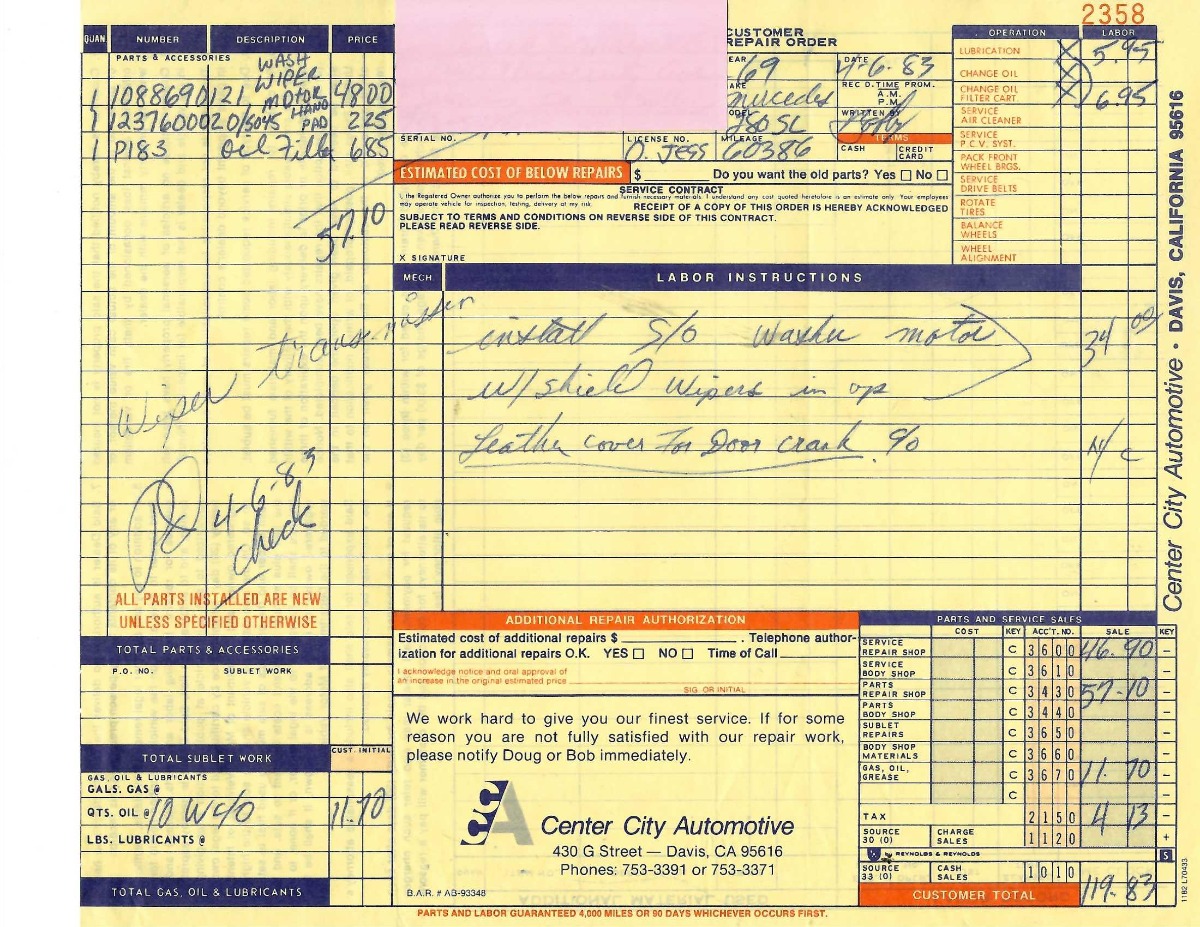 2358
QUAN. NUMBER DESCRIPTION PRICE
PARTS & ACCESSORIES
1 108869 0121 WASH WIPER MOTOR 48 00
1 123760002 0/5045 HAND PAD 2 25
1 P183 oil Filter 6 85
57.10
Wiper transmission
Pd 4-6-83
check
ALL PARTS INSTALLED ARE NEW
UNLESS SPECIFIED OTHERWISE
TOTAL PARTS & ACCESSORIES
P.O. NO. SUBLET WORK
TOTAL SUBLET WORK
CUST. INITIAL
GAS, OIL & LUBRICANTS
GALS. GAS @
QTS. OIL @ 10 W40 11.70
LBS. LUBRICANTS @
TOTAL GAS, OIL & LUBRICANTS
CUSTOMER
REPAIR ORDER
EAR 69
DATE 4-6-83
AKE Mercedes
REC D. TIME PROM.
A.M.
P.M.
ODEL 280 SL
WRITTEN BY
SERIAL NO.
LICENSE NO. O. JESS
MILEAGE 60386
TERMS
CASH CREDIT CARD
ESTIMATED COST OF BELOW REPAIRS $ Do you want the old parts? Yes No
SERVICE CONTRACT
I, the Registered Owner authorize you to perform the below repairs and furnish necessary materials. I understand any cost quoted heretofore is an estimate only. Your employees
may operate vehicle for inspection, testing, delivery at my risk. RECEIPT OF A COPY OF THIS ORDER IS HEREBY ACKNOWLEDGED
SUBJECT TO TERMS AND CONDITIONS ON REVERSE SIDE OF THIS CONTRACT.
PLEASE READ REVERSE SIDE.
X SIGNATURE
OPERATION LABOR
LUBRICATION X 5.95
CHANGE OIL X
CHANGE OIL FILTER CART. X 6.95
SERVICE AIR CLEANER
SERVICE P.C.V. SYST.
PACK FRONT WHEEL BRGS.
SERVICE DRIVE BELTS
ROTATE TIRES
BALANCE WHEELS
WHEEL ALIGNMENT
MECH LABOR INSTRUCTIONS
install S/O Washer motor 34 00
w/shield Wipers in op
Leather cover For Door crank %o N/C
ADDITIONAL REPAIR AUTHORIZATION
Estimated cost of additional repairs $ . Telephone author-
ization for additional repairs O.K. YES NO Time of Call
I acknowledge notice and oral approval of
an increase in the original estimated price
SIG. OR INITIAL
We work hard to give you our finest service. If for some
reason you are not fully satisfied with our repair work,
please notify Doug or Bob immediately.
CCA
Center City Automotive
430 G Street — Davis, CA 95616
Phones: 753-3391 or 753-3371
B.A.R. # AB-93348
PARTS AND SERVICE SALES
COST KEY ACC'T. NO. SALE KEY
SERVICE REPAIR SHOP C 3600 46.90 –
SERVICE BODY SHOP C 3610 –
PARTS REPAIR SHOP C 3430 57-10 –
PARTS BODY SHOP C 3440 –
SUBLET REPAIRS C 3650 –
BODY SHOP MATERIALS C 3660 –
GAS, OIL, GREASE C 3670 11.70 –
C –
TAX 2150 4 13 –
SOURCE 30 (0) CHARGE SALES 1120 +
REYNOLDS & REYNOLDS S
SOURCE 33 (0) CASH SALES 1010
CUSTOMER TOTAL 119.83
PARTS AND LABOR GUARANTEED 4,000 MILES OR 90 DAYS WHICHEVER OCCURS FIRST.
Center City Automotive • DAVIS, CALIFORNIA 95616
1182 L70433